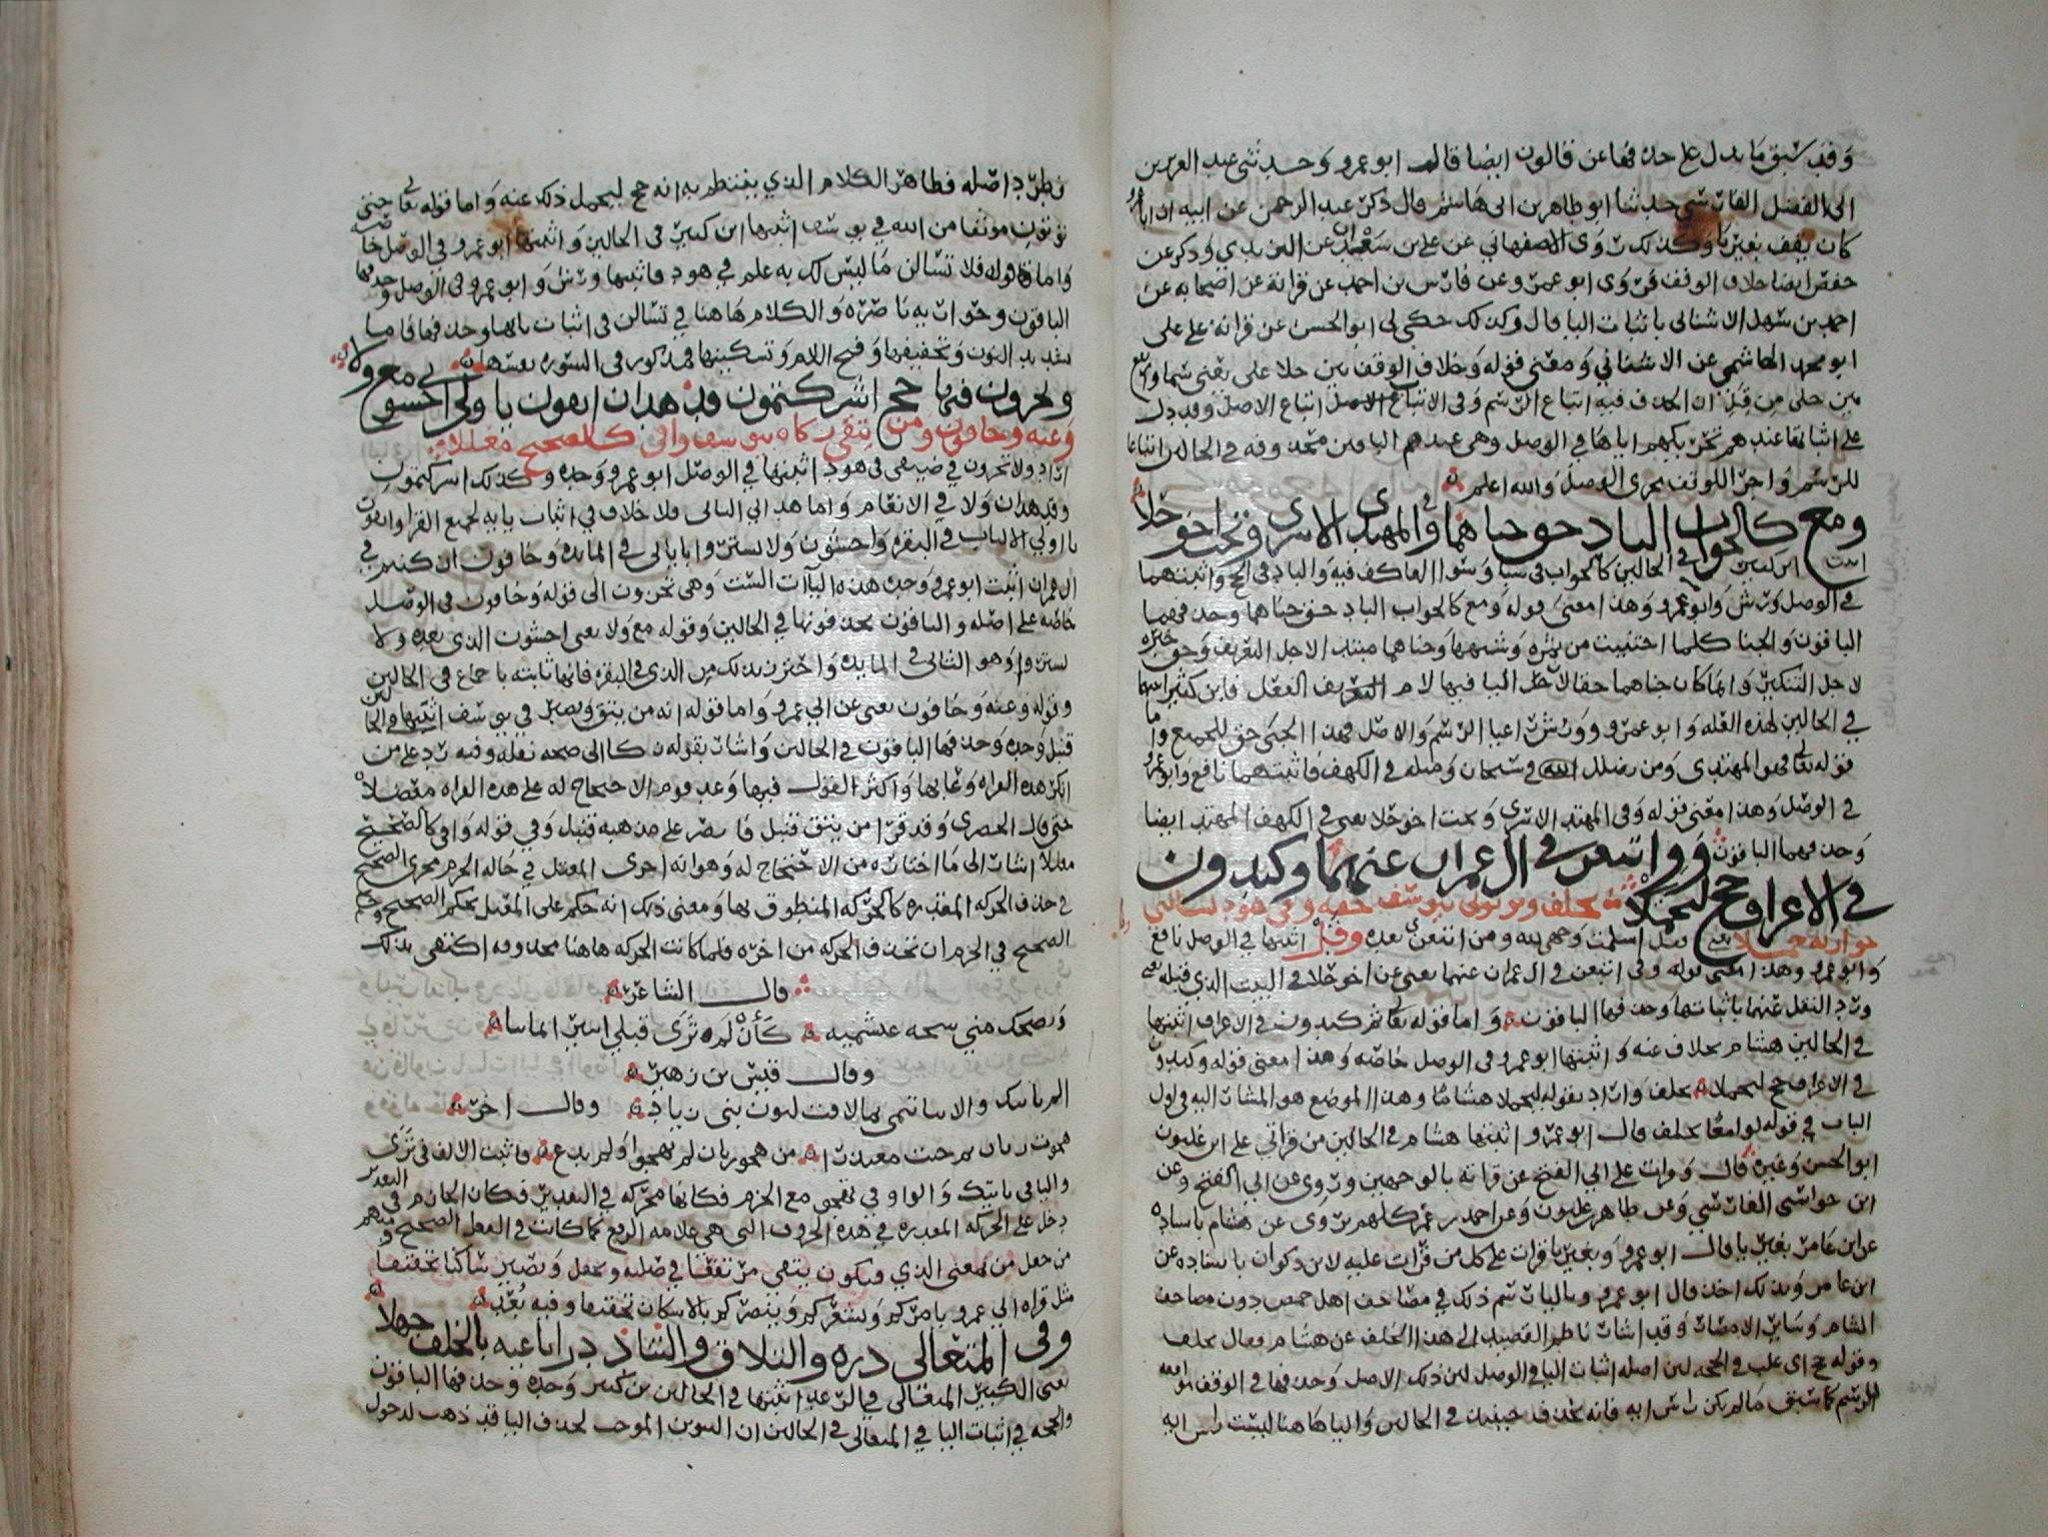 وقد سبق ما يدل على حذفها عن قالون ايضا قال ابو عمرو وحدثني عبد العزيز بن
ابي الفضل الفارسي حدثنا ابو طاهر بن ابي هاشم قال ذكر عبد الرحمن عن ابيه ان ابا عمرو
كان يقف بغير يا وكذلك روى الاصفهاني عن علي بن سعدان عن اليزيدي وذكر عن
حفص ايضا خلاف الوقف فروى ابو عمرو عن فارس بن احمد عن قراته عن اصحابه عن
احمد بن سهل الاشناني باثبات اليا قال وكذلك حكى لي ابو الحسن عن قراته على علي
ابو محمد الهاشمي عن الاشناني ومعنى قوله وخلاف الوقف بين حلا على يعني سما ورفع
بين حلى من قبل ان الحذف فيه اتباع الرسم وفي الاتباع الاصل اتباع الاصل وقد دل
على اثباتها عندهم تحريكهم اياها في الوصل وهي عندهم الباقين محذوفه في الحالين اتباعا
للرسم واجرا للوقف مجرى الوصل والله اعلم
ومع كالجواب الباد حق جناهما وفي المهتدي الاسرى وتحت اخو حلا
اثبت ابن كثير في الحالين كالجواب في سبا وسوا العاكف فيه والباد في الحج واثبتهما
في الوصل ورش وابو عمرو وهذا معنى قوله ومع كالجواب الباد حق جناهما وحذفهما
الباقون والجنا كلما اجتنيت من ثمره وشبهها وجناهما مبتدا لاجل التعريف وحق خبره
لاجل التنكير وانما كان جناهما حقا لاجل اليا فيها لام التعريف الفعل فابن كثير اثبتها
في الحالين لهذه العله وابو عمرو وورش راعيا الرسم والاصل فهذا الجنى حق للجميع واما
قوله تعالى فهو المهتدي ومن يضلل الله في سبحان ومثله في الكهف فاثبتهما نافع وابو عمرو
في الوصل وهذا معنى قوله وفي المهتد الاسرى وتحت اخو حلا يعني في الكهف المهتد ايضا
وحذفهما الباقون وفي اتبعن في ال عمران عنهما وكيدون
في الاعراف حج ليحملا بخلف وتوتوني بيوسف حقه وفي هود تسالني
حواريه جملا يعني فقل اسلمت وجهي لله ومن اتبعني بعده وقل اثبتها في الوصل نافع
وابو عمرو وهذا معنى قوله وفي اتبعن في ال عمران عنهما يعني عن اخو حلا في البيت الذي قبله يعني
ورد النقل عنهما باثباتها وحذفها الباقون واما قوله تعالى ثم كيدون في الاعراف اثبتها
في الحالين هشام بخلاف عنه واثبتها ابو عمرو في الوصل خاصه وهذا معنى قوله وكيدون
في الاعراف حج ليحملا بخلف واراد بقوله ليحملا هشاما وهذا الموضع هو المشار اليه في اول
الباب في قوله لوامعا بخلف قال ابو عمرو اثبتها هشام في الحالين من قراتي على ابن غلبون
ابو الحسن وغيره قال وقرات على ابي الفتح عن قراته بالوجهين وروى عن ابي الفتح وعن
ابن خواستي الفارسي وعن طاهر بن غلبون وعن احمد بن عمر كلهم روى عن هشام باسناده
عن ابن عامر بغير يا قال ابو عمرو وبغير يا قرات على كل من قرات عليه لابن ذكوان باسناده عن
ابن عامر وبذلك اخذ قال ابو عمرو وباليا رسم ذلك في مصاحف اهل حمص دون مصاحف
الشام وساير الامصار وقد اشار ناظم القصيد الى هذا الخلف عن هشام فقال بخلف
وقوله حج اي غلب في الحجه لان اصله اثبات اليا في الوصل لان ذلك الاصل وحذفها في الوقف لموافقه
الرسم كما سبق ما لم يكن راس ايه فانه يحذف حينئذ في الحالين واليا هاهنا ليست راس ايه
فطرد اصله فظاهر الكلام الذي يقتضيه انه حج ليحمل ذلك عنه واما قوله تعالى حتى
توتون موثقا من الله في يوسف اثبتها ابن كثير في الحالين واثبتها ابو عمرو في الوصل خاصه
واما قوله فلا تسالن ما ليس لك به علم في هود فاثبتها ورش وابو عمرو في الوصل وحذفها
الباقون وحواريه ناصره والكلام هاهنا في تسالن في اثبات يايها وحذفها فاما
تشديد النون وتخفيفها وفتح اللام وتسكينها فمذكور في السوره نفسها
وتخزون فيها حج اشركتمون قد هدان اتقون يا اولي اخشون مع ولا
وعنه وخافون ومن يتقي زكا بيوسف وافى كالصحيح معللا
اراد ولا تخزون في ضيفي في هود اثبتها في الوصل ابو عمرو وحده وكذلك اشركتمون
وقد هدان ولا في الانعام واما هداني الثاني فلا خلاف في اثبات يايه لجميع القرا واتقون
يا اولي الالباب في البقره واخشون ولا تشتروا باياتي في المايده وخافون ان كنتم في
ال عمران اثبت ابو عمرو وحده هذه اليآات الست وهي تخزون الى قوله وخافون في الوصل
خاصه على اصله والباقون يحذفونها في الحالين وقوله مع ولا يعني اخشون الذي بعده ولا
تشتروا وهو الثاني في المايده واحترز بذلك من الذي في البقره فانها ثابته باجماع في الحالين
وقوله وعنه وخافون يعني عن ابي عمرو واما قوله انه من يتق ويصبر في يوسف اثبتها في الحالين
قنبل وحده وحذفها الباقون في الحالين واشار بقوله زكا الى صحه نقله وفيه رد على من
انكر هذه القراه وعابها واكثر القول فيها وعد قوم الاحتجاج له على هذه القراه معضلا
حتى قال الحصري وقد قرا من يتق قنبل فانصر على مذهبه قنبل وفي قوله وافى كالصحيح
معللا اشار الى ما اختاره من الاحتجاج له وهو انه اجرى المعتل في حاله الجزم مجرى الصحيح
في حذف الحركه المقدره كالحركه المنطوق بها ومعنى ذلك انه حكم على المعتل بحكم الصحيح وحكم
الصحيح في الجزم ان تحذف الحركه من اخره فلما كانت الحركه هاهنا محذوفه اكتفى بذلك
قال الشاعر
وتضحك مني شيخه عبشميه كأن لم ترى قبلي اسير اليمانيا
وقال قيس بن زهير
الم ياتيك والانبا تنمي بما لاقت لبون بني زياد وقال اخر
هجوت زبان ثم جيت معتذرا من هجو زبان لم تهجوا ولم تدع فاثبت الالف في ترى
واليا في ياتيك والواو في تهجو مع الجزم فكانها محركه في التقدير فكان الجازم في التقدير
دخل على الحركه المقدره في هذه الحروف التي هي علامه الرفع كما كانت في الفعل الصحيح ومنهم
من جعل من بمعنى الذي ويكون يتقي مرتفعا في صلته ويجعل ويصبر ساكنا تخفيفا
مثل قراه ابي عمرو يامركم ويشعركم وينصركم بالاسكان تخفيفا وفيه بعد
وفي المتعالي دره والتلاق والتناد درا باغيه بالخلف جهلا
يعني الكبير المتعالي في الرعد اثبتها في الحالين ابن كثير وحده وحذفها الباقون
والحجه في اثبات اليا في المتعالي في الحالين ان التنوين الموجب لحذف اليا قد ذهب لدخول